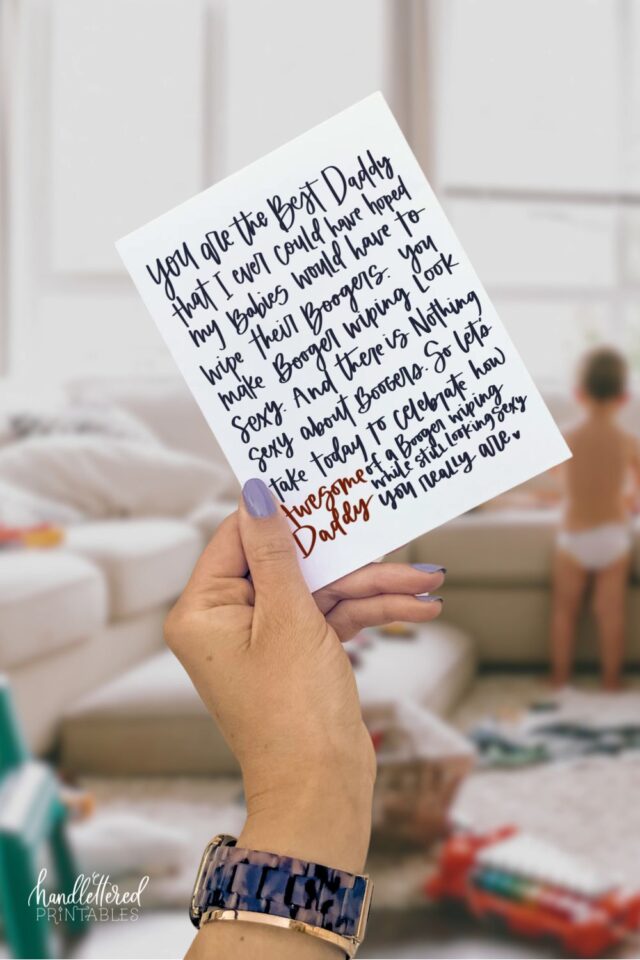 you are the Best Daddy
that I ever could have hoped
my Babies would have to
wipe their Boogers. you
make Booger wiping Look
Sexy. And there is Nothing
sexy about Boogers. So let's
take today to celebrate how
Awesome of a Booger wiping
Daddy while still looking sexy
you really are.
handlettered
PRINTABLES